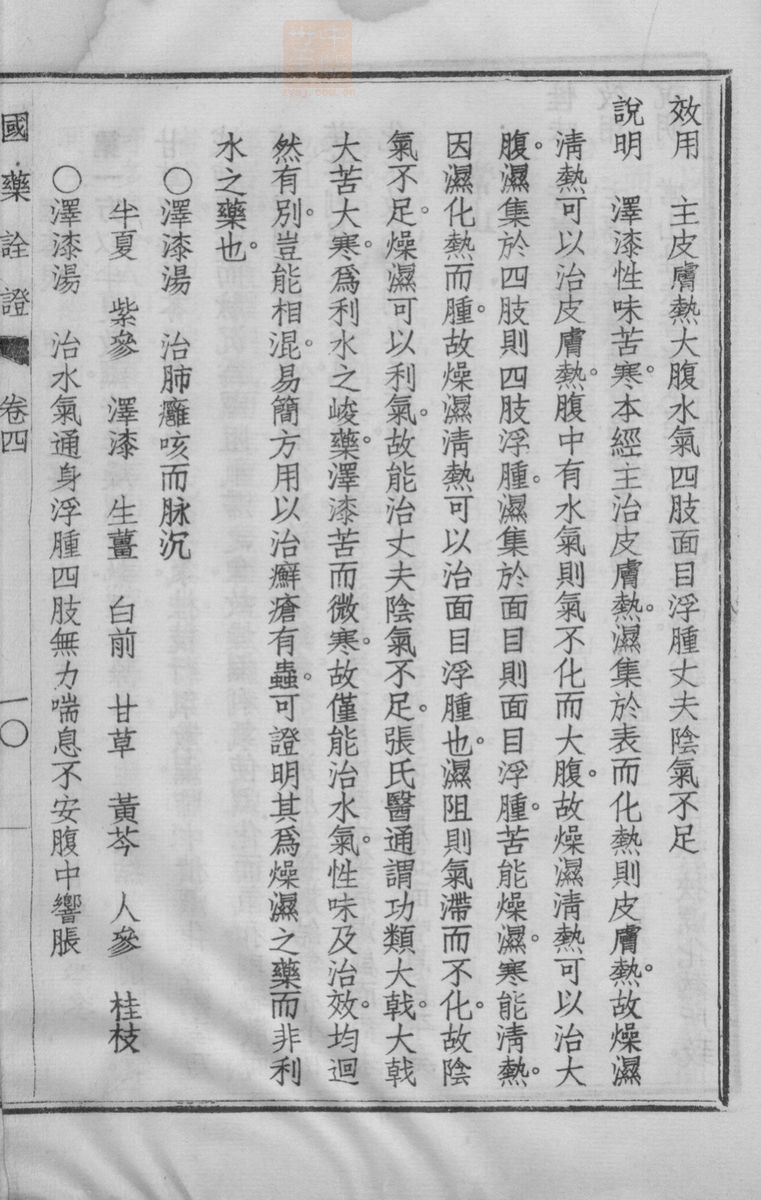 效用　主皮膚熱大腹水氣四肢面目浮腫丈夫陰氣不足
說明　澤漆性味苦寒。本經主治皮膚熱。濕集於表而化熱則皮膚熱。故燥濕
清熱可以治皮膚熱。腹中有水氣則氣不化而大腹。故燥濕清熱可以治大
腹。濕集於四肢則四肢浮腫。濕集於面目則面目浮腫。苦能燥濕。寒能清熱。
因濕化熱而腫。故燥濕清熱可以治面目浮腫也。濕阻則氣滯而不化。故陰
氣不足。燥濕可以利氣。故能治丈夫陰氣不足。張氏醫通謂功類大戟。大戟
大苦大寒。爲利水之峻藥。澤漆苦而微寒。故僅能治水氣。性味及治效。均迴
然有別。豈能相混。易簡方用以治癬瘡有蟲。可證明其爲燥濕之藥而非利
水之藥也。
〇澤漆湯　治肺癰咳而脉沉
半夏　紫參　澤漆　生薑　白前　甘草　黃芩　人參　桂枝
〇澤漆湯　治水氣通身浮腫四肢無力喘息不安腹中響脹
國藥詮證　卷四　一〇